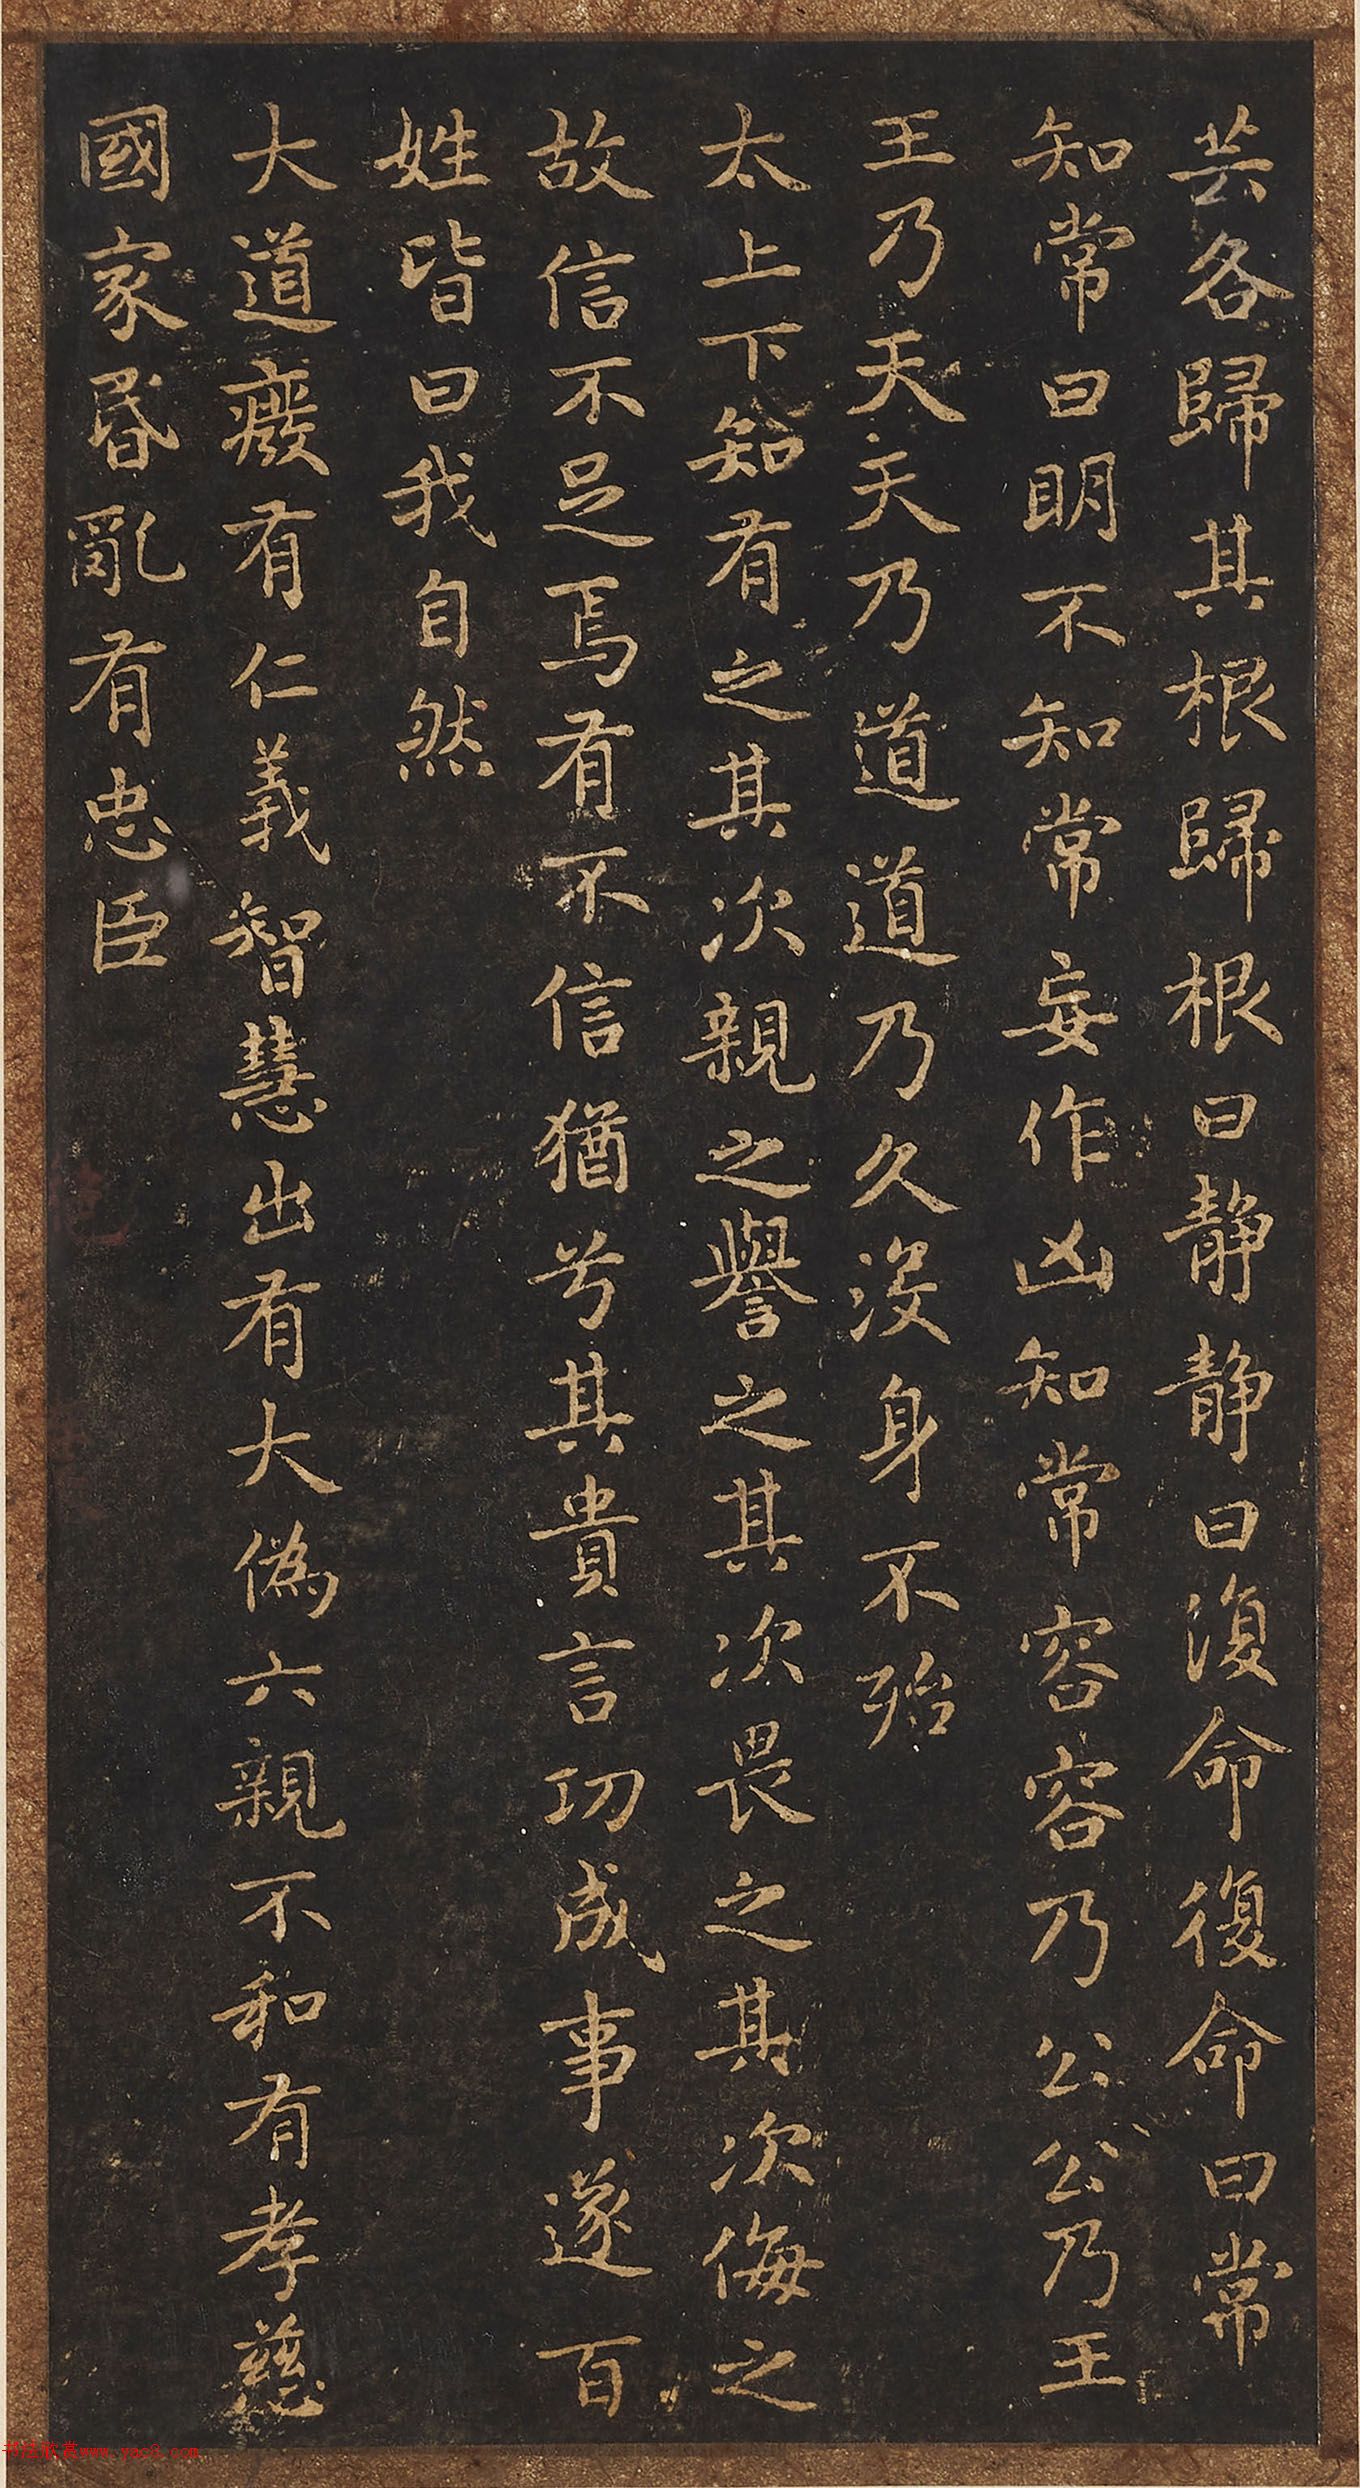 芸各歸其根歸根曰静静曰復命復命曰常
知常曰明不知常妄作凶知常容容乃公公乃王
王乃天天乃道道乃久没身不殆
太上下知有之其次親之譽之其次畏之其次侮之
故信不足焉有不信猶兮其貴言功成事遂百
姓皆曰我自然
大道癈有仁義智慧出有大偽六親不和有孝慈
國家昬亂有忠臣
书法欣赏www.yac8.com